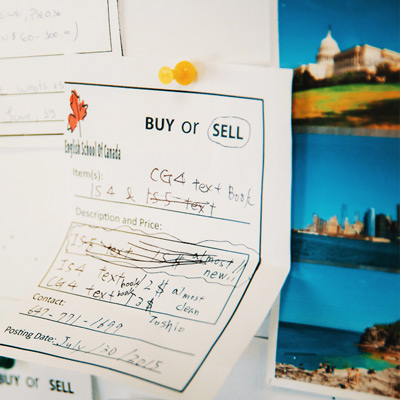 Please
English School Of Canada
BUY or SELL
Item(s):
CG4 text Book
IS4 & IS5 text
Description and Price:
IS5 text
IS4 almost
new!!
IS4 text book 2$ almost
clean
CG4 text book 3$
Contact: Toshio
647-771-1699
Posting Date: July/20/2015
BUY or SELL